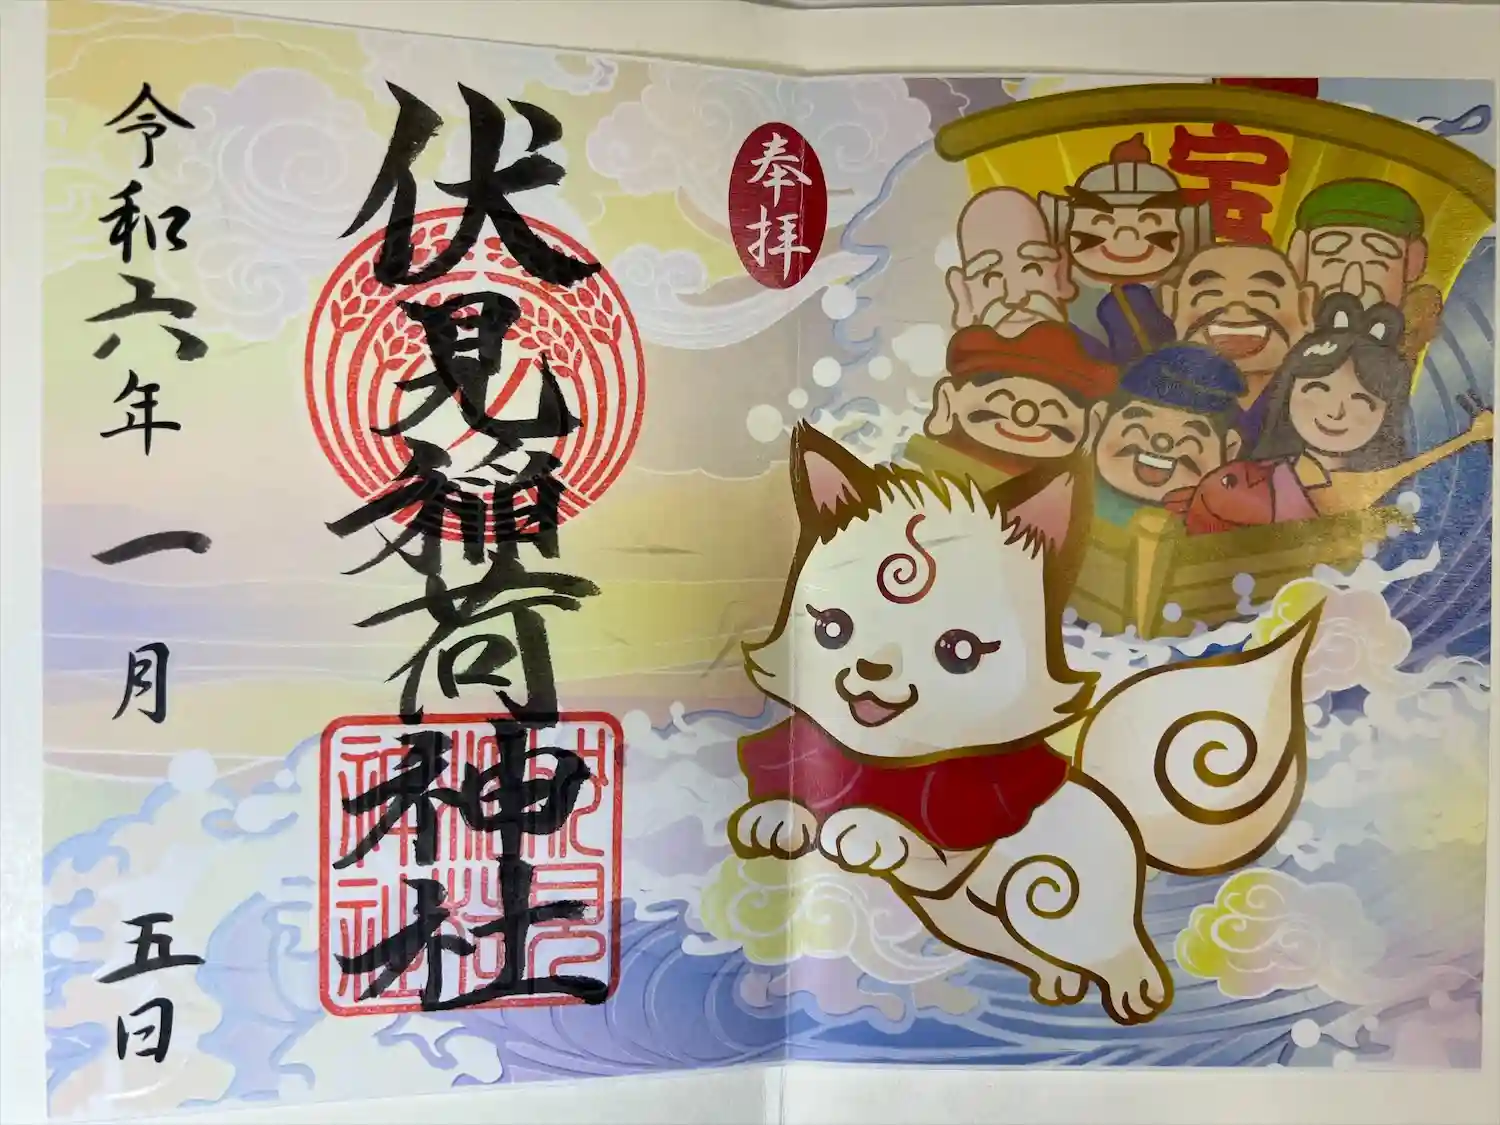 奉拝
宝
伏見稲荷神社
伏見
稲荷
神社
令和六年一月五日